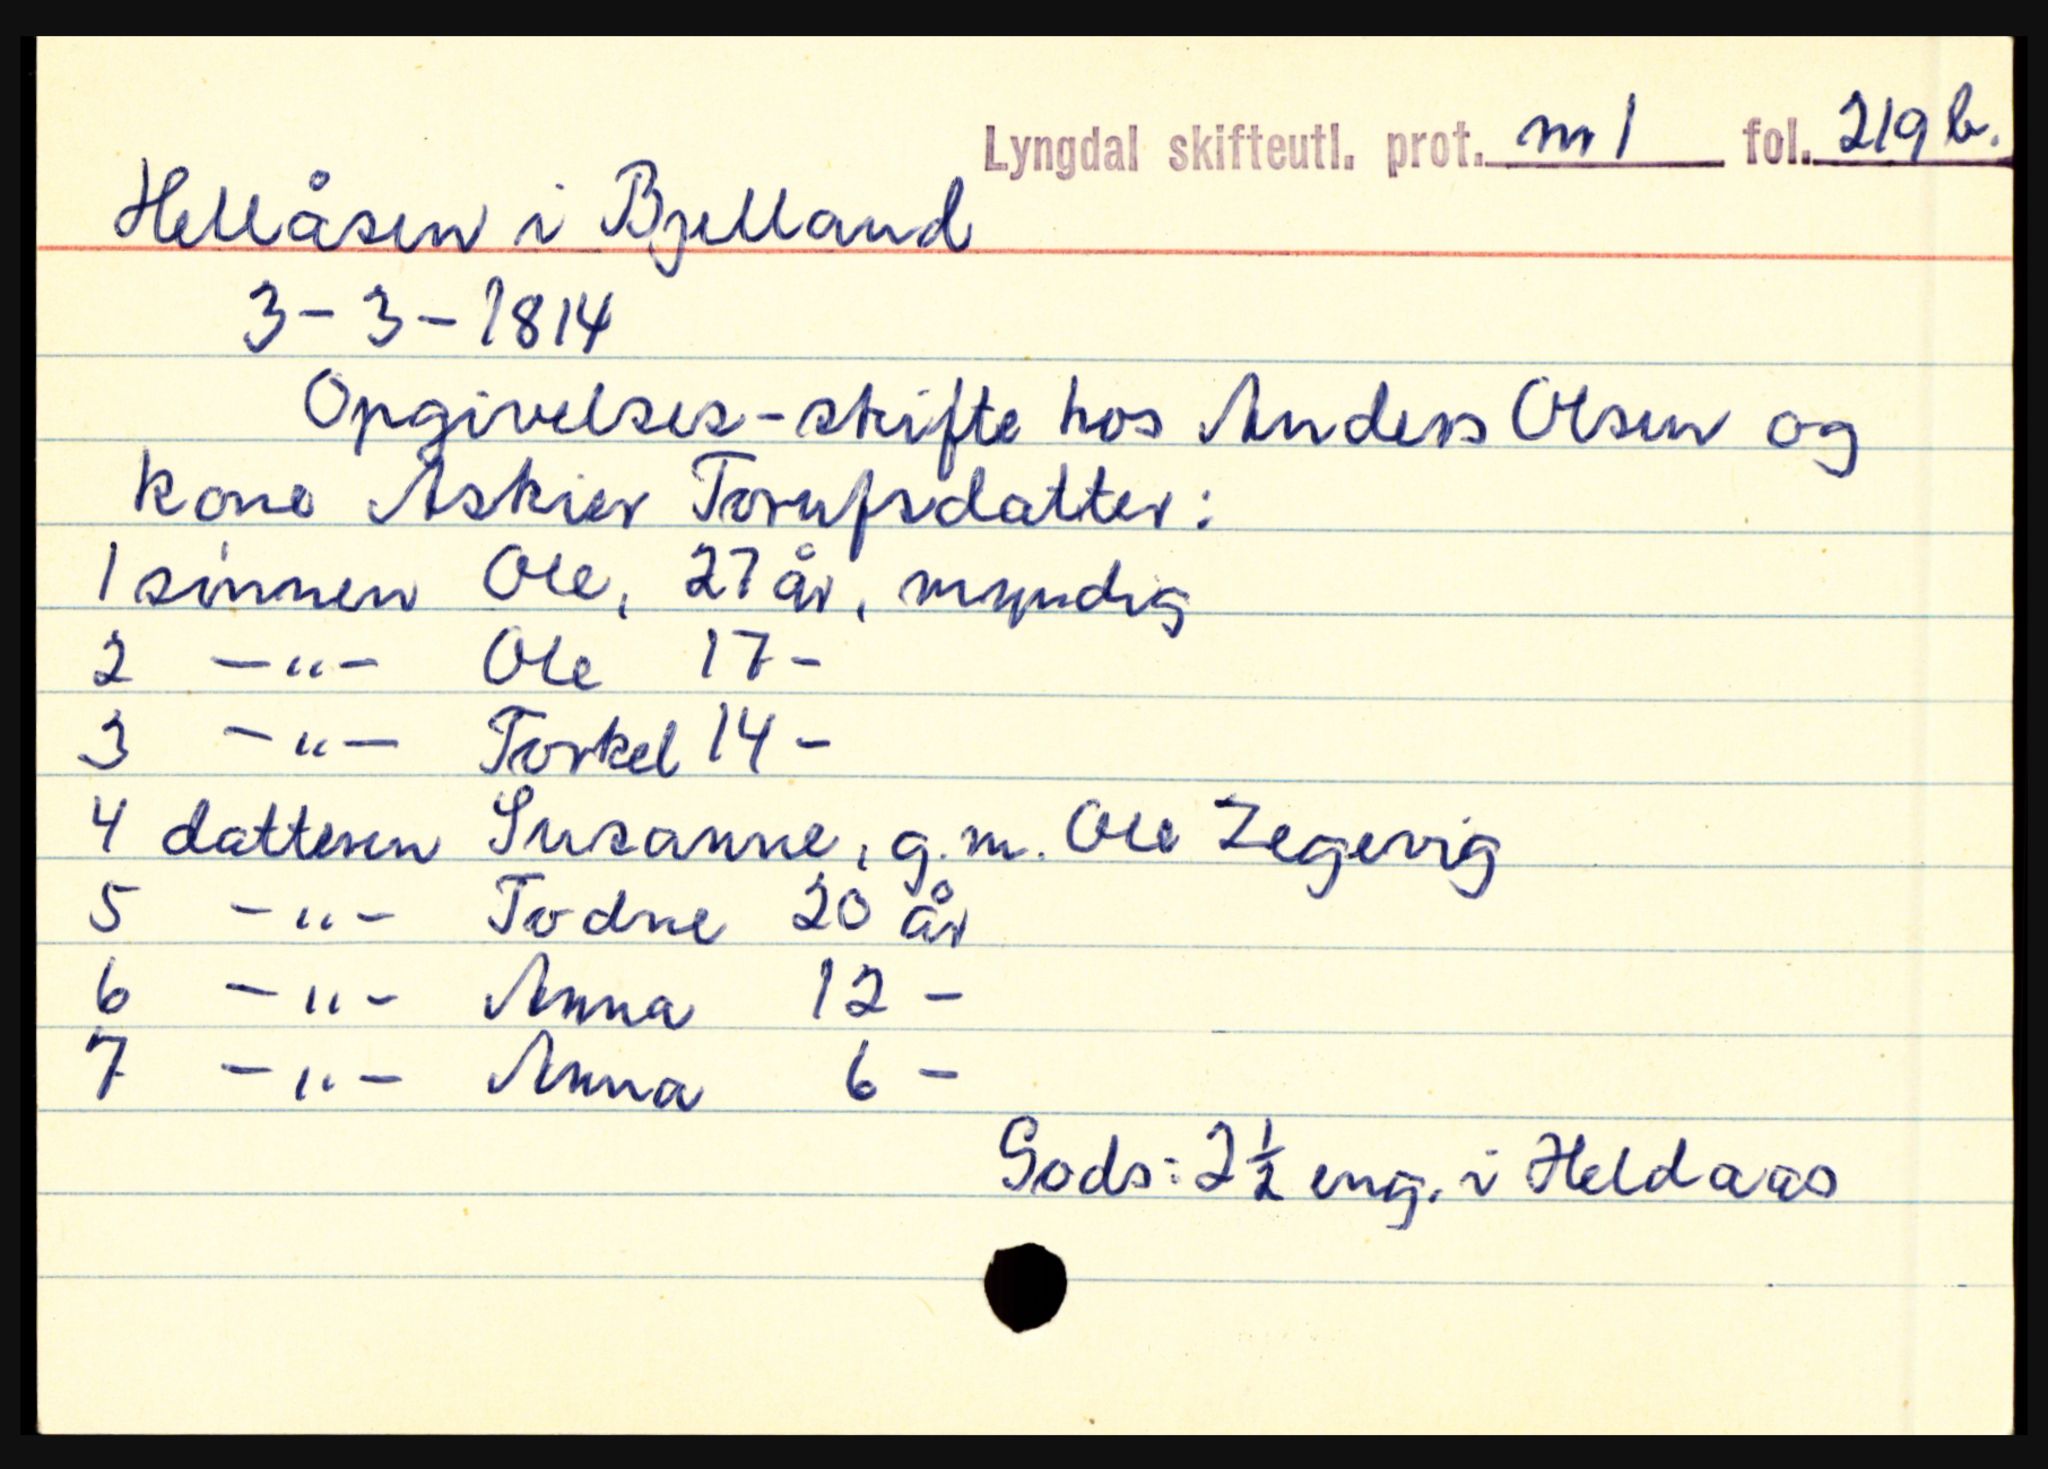 Lyngdal skifteutl. prot. nr 1 fol. 219 b.
Hellåsen i Bjelland
3-3-1814
Opgivelses-skifte hos Anders Olsen og
kone Askier Torufsdatter:
1 sønnen Ole, 27 år, myndig
2 -"- Ole 17-
3 -"- Torkel 14-
4 datteren Susanne, g.m. Ole Zegevig
5 -"- Todne 20 år
6 -"- Anna 12-
7 -"- Anna 6-
Gods: 2 1/2 eng. i Heldaas